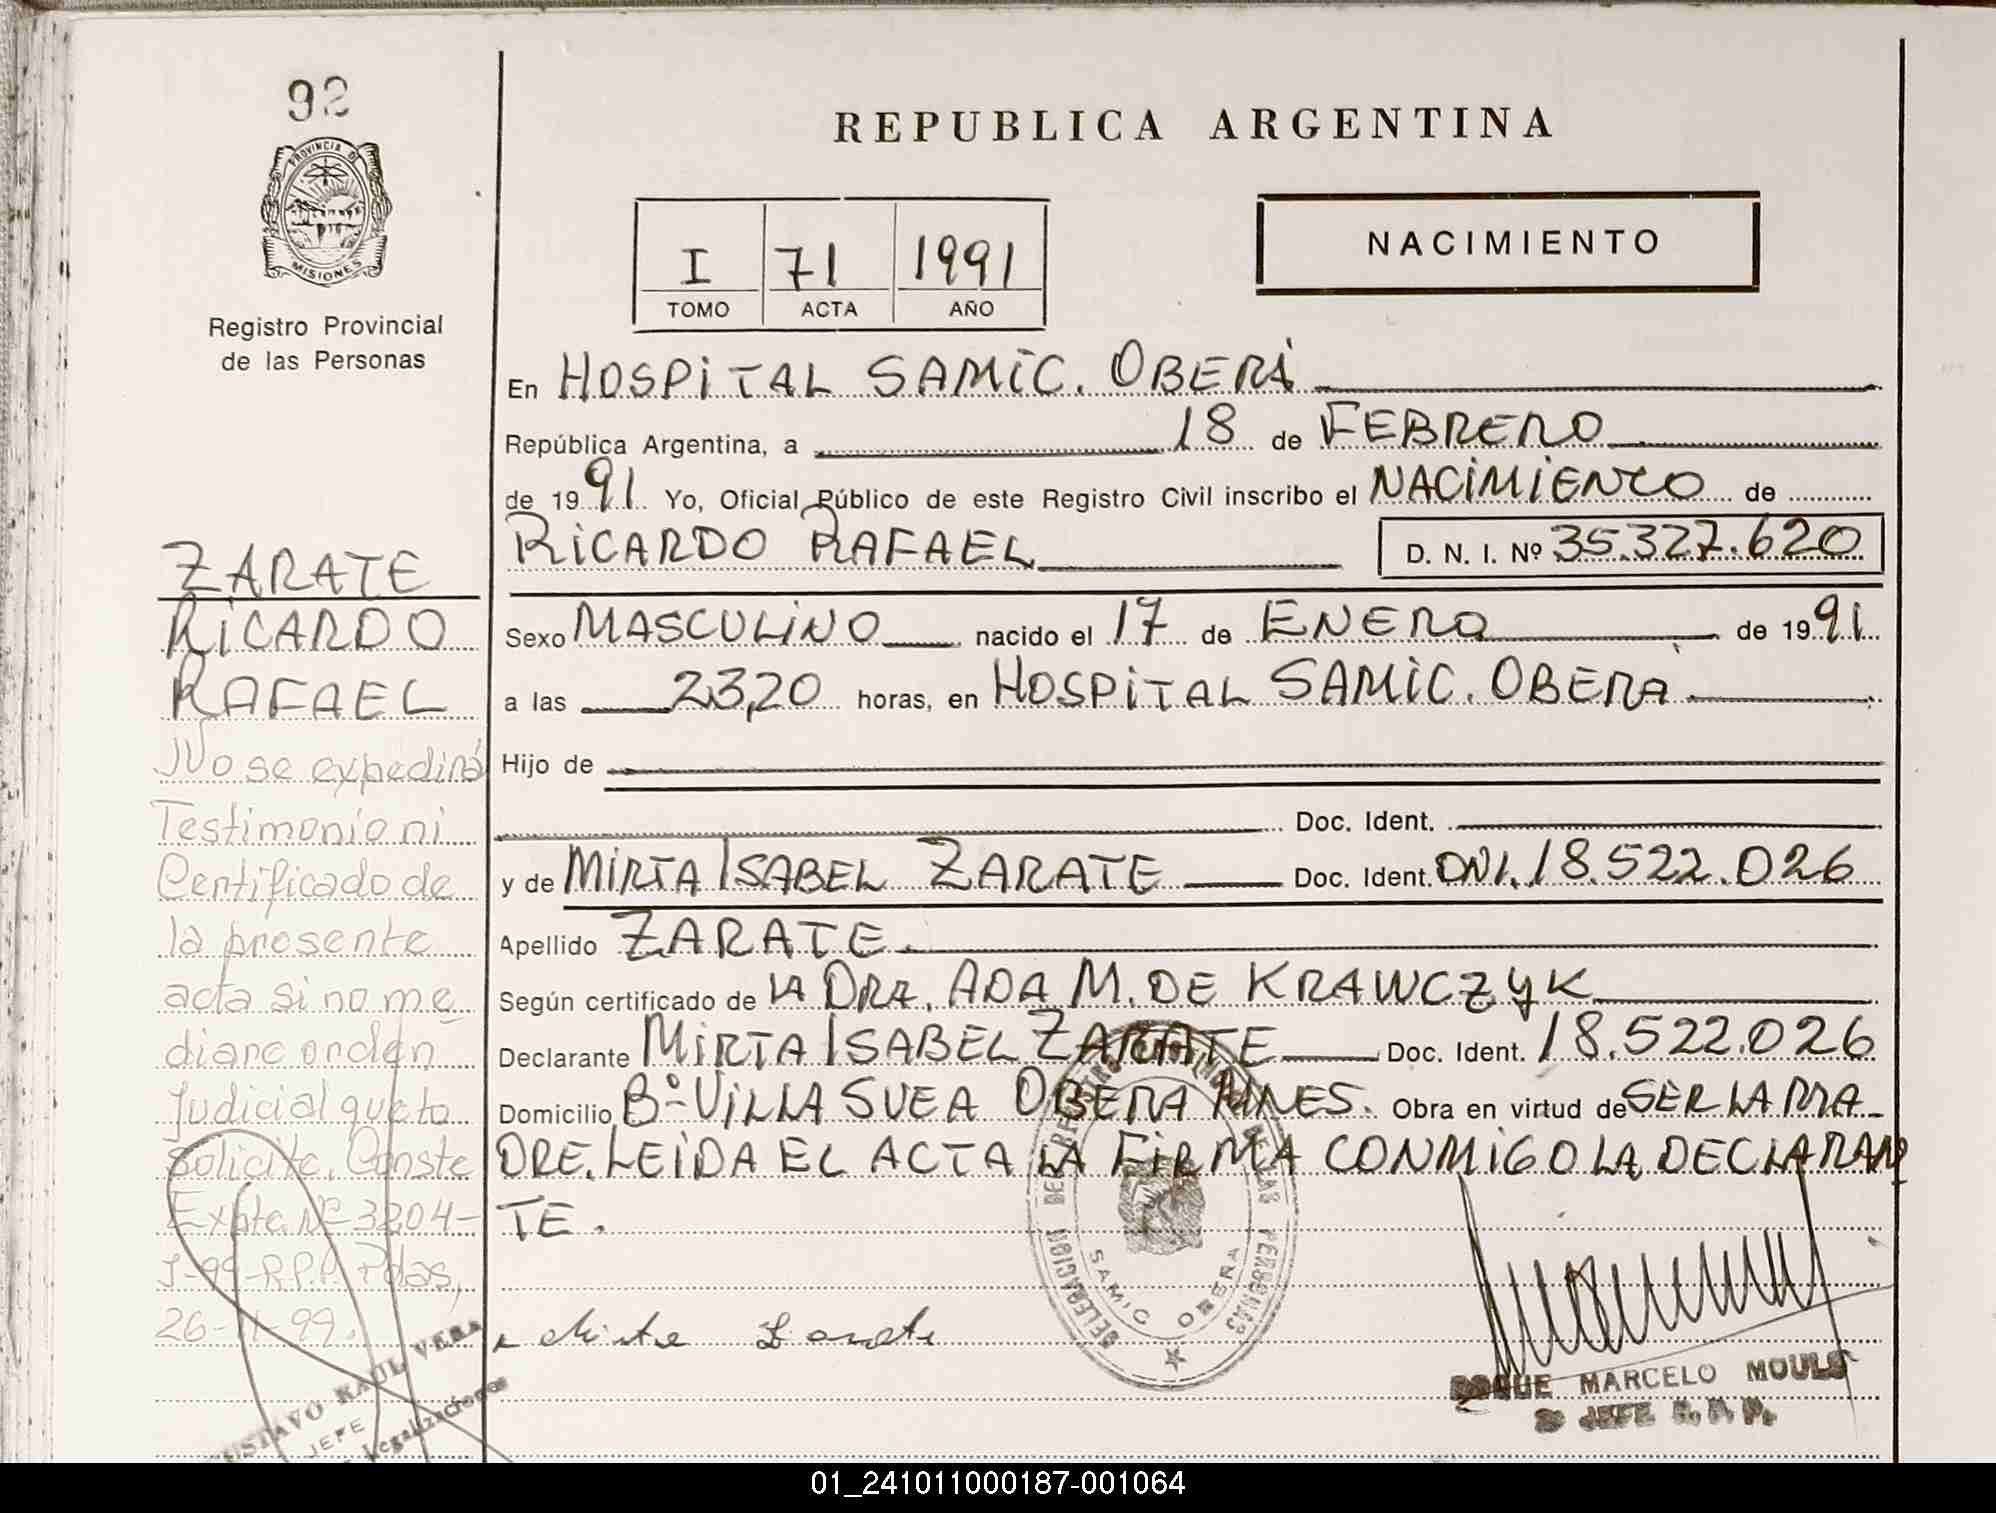 92
PROVINCIA DE
MISIONES
Registro Provincial
de las Personas
REPUBLICA ARGENTINA
I 71 1991
TOMO ACTA AÑO
NACIMIENTO
En HOSPITAL SAMIC. OBERÁ
República Argentina, a 18 de FEBRERO
de 1991 Yo, Oficial Público de este Registro Civil inscribo el NACIMIENTO de
RICARDO RAFAEL D. N. I. Nº 35.327.620
Sexo MASCULINO nacido el 17 de ENERO de 1991
a las 23,20 horas, en HOSPITAL SAMIC. OBERA
Hijo de
Doc. Ident.
y de MIRTA ISABEL ZARATE Doc. Ident. DNI. 18.522.026
Apellido ZARATE.
Según certificado de LA DRA. ADA M. DE KRAWCZYK
Declarante MIRTA ISABEL ZARATE Doc. Ident. 18.522.026
Domicilio Bº VILLA SVEA OBERA MNES. Obra en virtud de SER LA MA
DRE. LEIDA EL ACTA LA FIRMA CONMIGO LA DECLARAN
TE.
Mirta Zarate
DELEGACION DEL REGISTRO PROVINCIAL DE LAS PERSONAS
SAMIC OBERA
ROQUE MARCELO MOULS
2º JEFE R. P. P.
ZARATE
RICARDO
RAFAEL
No se expedirá
Testimonio ni
Certificado de
la presente
acta si no me
diare orden
Judicial que lo
Solicite. Conste
Expte. Nº 3204-
J-99-R.P.P. Pdas,
26-11-99.
GUSTAVO RAUL VERA
JEFE
Legalizaciones
01_241011000187-001064